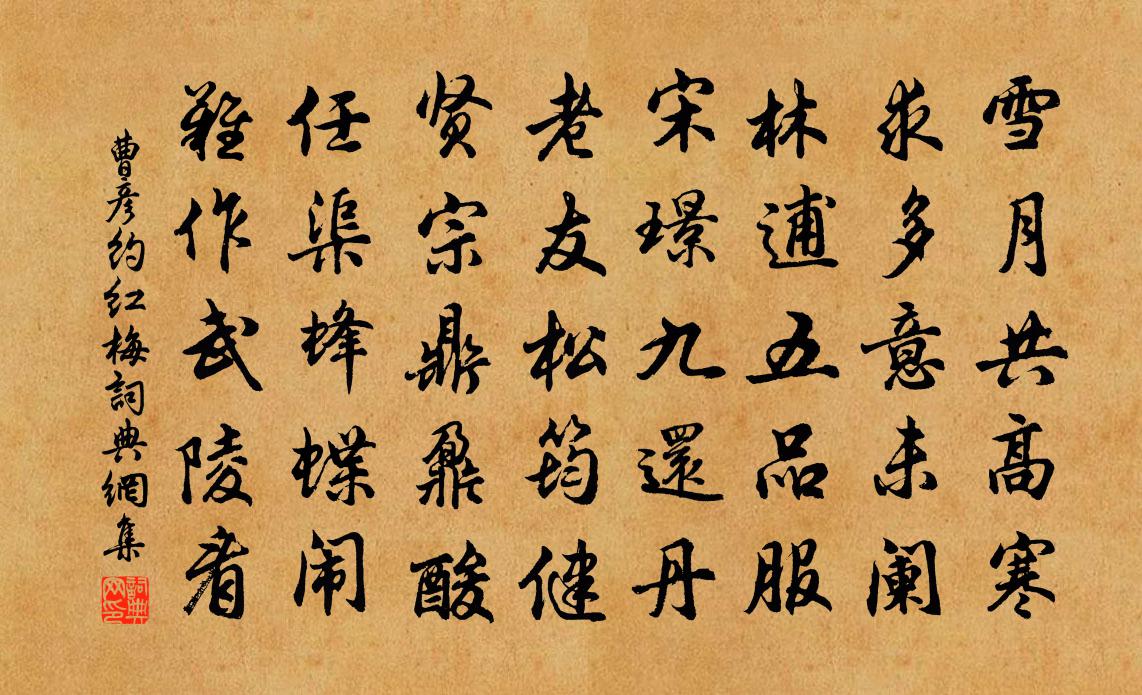 雪月共高寒
求多意未阑
林逋五品服
宋璟九還丹
老友松筠健
贤宗鼎鼐酸
任渠蜂蝶闹
難作武陵看
曹彦约红梅詞典網集
詞典网印